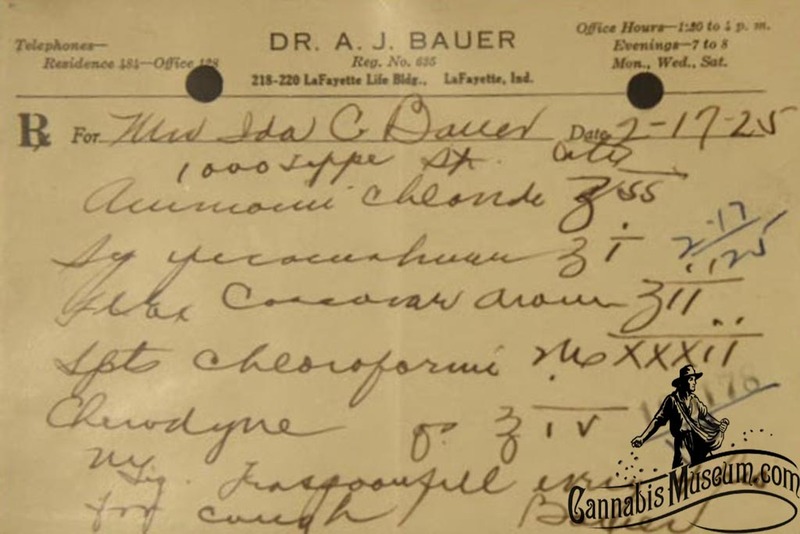 Telephones—
Residence 484—Office 128
DR. A. J. BAUER
Reg. No. 635
218-220 LaFayette Life Bldg., LaFayette, Ind.
Office Hours—1:30 to 4 p. m.
Evenings—7 to 8
Mon., Wed., Sat.
Rx For Mrs Ida C Bauer Date 2-17-25
1000 St. City
Ammonii Chloride ʒ ss
Sy ʒ i
2-17
25
arom ʒ ii
Spts Chloroformi XXXii
Chlorodyne ʒ iv
Sig. Teaspoonful
for cough Bauer
CannabisMuseum.com